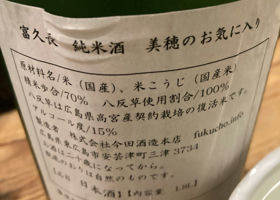 富久長 純米酒 美穂のお気に入り
原材料名/米(国産)、米こうじ(国産米)
精米歩合/70% 八反草使用割合/100%
八反草は広島県高宮産契約栽培の復活米です。
アルコール度/15%
製造者 株式会社今田酒造本店 fukucho.info
広島県東広島市安芸津町三津 3734
お酒は二十歳になってから。
自然のものです。
日本酒 【内容量 1.8L】